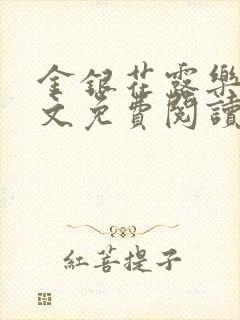 金銀花露樂
文免費閱讀
紅菩提子